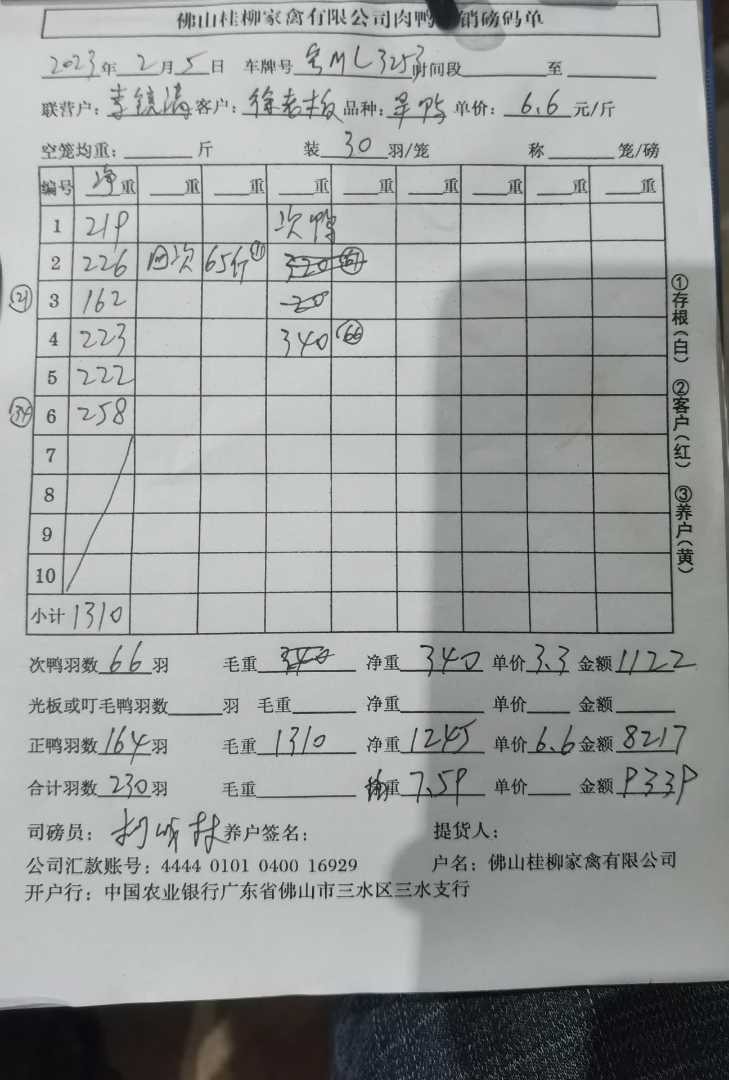 佛山桂柳家禽有限公司肉鸭 销磅码单
2023年 2月 5日 车牌号 ML3253 时间段 至
联营户： 客户：徐老板 品种： 单价：6.6 元/斤
空笼均重： 斤 装 30 羽/笼 称 笼/磅
编号 净重 重 重 重 重 重 重 重 重
1 219 次鸭
2 226 回次 65斤 ⑪ 320
㉑ 3 162 -20
4 223 340 66
5 222
34 6 258
7
8
9
10
小计 1310
次鸭羽数 66 羽 毛重 340 净重 340 单价 3.3 金额 1122
光板或叮毛鸭羽数 羽 毛重 净重 单价 金额
正鸭羽数 164 羽 毛重 1310 净重 1245 单价 6.6 金额 8217
合计羽数 230 羽 毛重 均重 7.59 单价 金额 9339
司磅员： 养户签名： 提货人：
公司汇款账号：4444 0101 0400 16929 户名：佛山桂柳家禽有限公司
开户行：中国农业银行广东省佛山市三水区三水支行
①存根（白） ②客户（红） ③养户（黄）